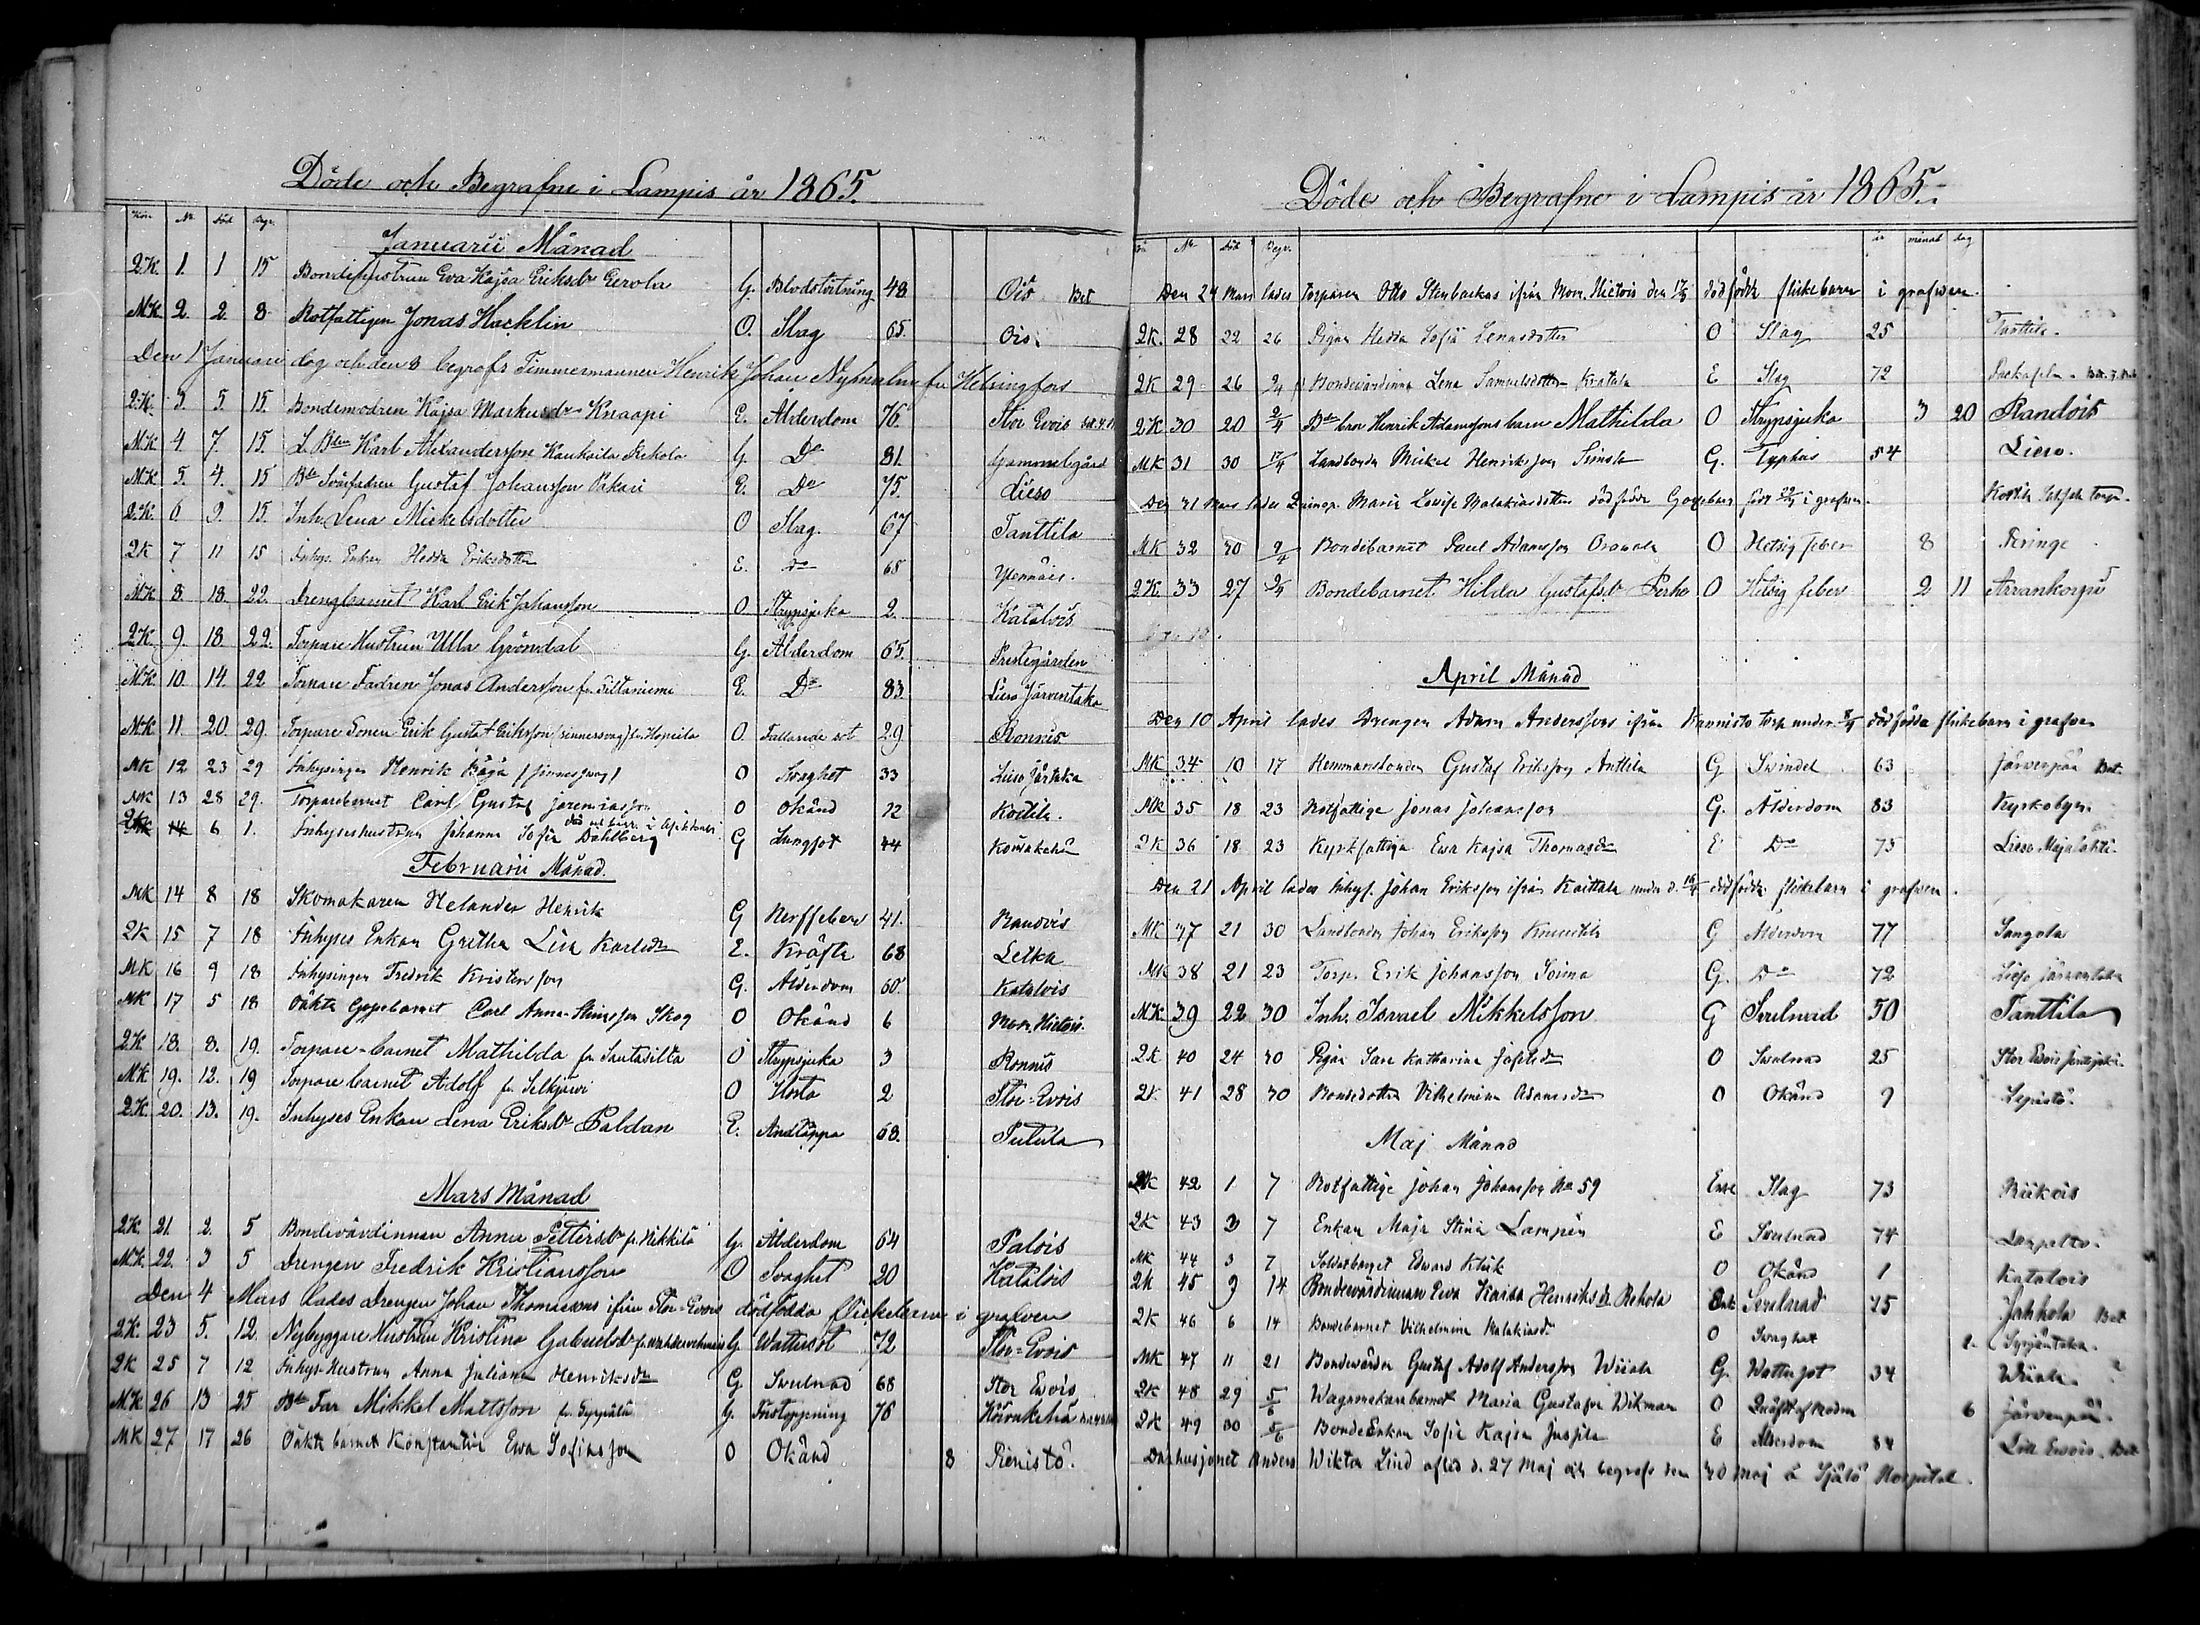 Döde och Begrafne i Lampis år 1865.
Kön Nr död Begr.
Januarii Månad
QK. 1. 1 15 Bondehustrun Eva Kajsa Eriksdr Eerola G. Blodstörtning 48 Ois Bet
MK 2 2. 8 Rotfattigen Jonas Hacklin O. Slag 65. Ois.
Den 1 Januari dog och den 8 begrofs Timmermannen Henrik Johan Nyman fr. Helsingfors
QK. 3. 5. 15. Bondemodren Kajsa Markusdr Knaapi E. Ålderdom 76. Stor Evois
MK 4 7. 15. L. Bden Karl Alexandersson Kauhaila Rekola G. Do 81. Gammelgård
MK 5. 4. 15 Bde Svärfadren Gustaf Johansson Pakari E. Do 75. Lieso
QK. 6 9. 15. Inh. Lena Mickelsdotter O Slag. 67 Tanttila
QK 7 11 15 Inhys. Enkan Hedda Eriksdotter E. Do 68 Ylennäis.
MK 8. 18. 22. Drengbarnet Karl Erik Johansson O Strypsjuka 2. Katalois
QK. 9. 18. 22. Torpare Hustrun Ulla Gröndal G. Ålderdom 65. Prestegården
MK 10. 14. 22 Torpare Fadren Jonas Andersson fr. Siltaniemi E. Do 83 Lieso Järventaka
MK 11. 20. 29. Torpare Sonen Erik Gustaf Eriksson (sinnessvag) fr. O. Fallande sot 29 Ronnis
MK 12 23 29 Inhysingen Henrik Böja (sinnessvag) O Svaghet 33 Lieso
MK 13 28 29. Torparebarnet Carl Gustaf Jeremiasson O Okänd 22 Kostila.
QK 14 6 1. Inhyseshustrun Johanna Sofia Dahlberg G Lungsot 44
Februarii Månad.
MK 14 8 18 Skomakaren Helander Henrik G Nerffeber 41. Randois
QK 15 7 18 Inhyses Enkan Gretha Lisa Karlsdr E. Kräfta 68 Leika
MK 16 9 18 Inhysingen Fredrik Kristersson G. Ålderdom 60. Katalois
MK 17 5 18 Oäkta Gossebarnet Carl Anna-Stinasson Skog O Okänd 6 Mom. Hietois.
QK 18. 8. 19. Torpare-barnet Mathilda fr. Santasilta O Strypsjuka 3 Ronnis
MK 19. 12. 19 Torpare barnet Adolf fr. Selkjärvi O Hosta 2 Stor-Evois
QK. 20. 13. 19. Inhyses Enkan Lena Eriksdr Paldan E. Andtäppa 68. Putula
Mars Månad
QK. 21. 2. 5 Bondevärdinnan Anna Pettersdr fr. Nikkilä G. Ålderdom 64 Palois
MK. 22. 3 5 Drengen Fredrik Kristiansson O Svaghet 20 Katalois
Den 4 Mars lades Drengen Johan Thomassons ifrån Stor-Evois dödfödda flickebarn i grafven
QK. 23 5. 12. Nybyggare Hustrun Kristina Gabrielsdr G. Wattusot 72 Stor-Evois
QK 25 7 12 Inhys-Hustrun Anna Juliana Henriksdr G. Swulnad 68 Stor Evois
MK 26 13 25 Bde Far Mikkel Mattsson G. Förstoppning 76
MK 27 17 26 Oäkta barnet Konstantin Ewa Sofiasson O Okänd 8 Pienistö.
Döde och Begrafne i Lampis år 1865.
Kön Nr död Begr. år månad dag
Den 24 Mars lades Torparen Otto Stenbackas ifrån Mom. Hietois den 17/3 dödfödda flickebarn i grafwen.
QK. 28 22 26 Pigan Hedda Sofia Lenasdotter O Slag 25 Tanttila.
QK 29 26 2/4 Bondevärdinna Lena Samuelsdotter Kratala E Slag 72
QK 30 20 2/4 Bde bror Henrik Adamssons barn Mathilda O Strypsjuka 3 20 Randois
MK 31 30 17/4 Landbonden Mickel Henriksson G. Typhus 54 Lieso.
Den 31 Mars lades Maria Lovisa Malakiasdotters dödfödda Gossebarn i grafwen.
MK 32 30 9/4 Bondebarnet Paul Adamsson O Hetsig feber 8 Poringe
QK. 33 27 9/4 Bondebarnet Hilda Gustafsdr Perho O Hetsig feber 2 11 Arrankorpi
April Månad
Den 10 April lades Drengen Adam Anderssons ifrån Kannisto torp under dödfödda flickebarn i grafven
MK 34 10 17 Hemmansbonden Gustaf Eriksson Anttila G Swindel 63 Järvenpää Bet.
MK 35 18 23 Rotfattige Jonas Johansson G. Ålderdom 83 Kyrkobyn.
QK 36 18 23 Kyrkfattiga Ewa Kajsa Thomasdr E Do 75 Lieso
Den 21 April lades Inhys. Johan Eriksson ifrån Kaittala under d. 16/4 dödfödda flickebarn i grafwen.
MK 37 21 30 Landbonden Johan Eriksson G Ålderdom 77 Tangola
MK 38 21 23 Torp. Erik Johansson Soima G. Do 72 Lieso Järventaka
MK 39 22 30 Inh. Israel Mikkelsson G Svulnad 50 Tanttila
QK 40 24 30 Pigan Sara Katharina Josefsdr O Swulnad 25 Stor Evois
QK. 41 28 30 Bondedotter Vilhelmina Adamsdr O Okänd 9
Maj Månad
MK 42 1 7 Rotfattige Johan Johansson No 59 Enkl Slag 73 Riikois
QK 43 3 7 Enkan Maja Stina Lampén E Swulnad 74
MK 44 3 7 Soldatbarnet Edward Klink O Okänd 1 Katalois
QK 45 9 14 Bondewärdinnan Ewa Kaisa Henriksdr Rekola Enk Swulnad 75 Jahkola Bet
QK 46 6 14 Bondebarnet Vilhelmina Malakiasdr O Swaghet 2. Syrjäntaka.
MK 47 11 21 Bondewärden Gustaf Adolf Andersson Wiiala G. Wattusot 34 Wiiala.
QK 48 29 5/6 Wagnmakarebarnet Maria Gustafva Wikman O Quäfd af Modren 6 Järvenpää.
QK 49 30 5/6 BondeEnkan Sofia Kajsa Jussila E Ålderdom 84 Lill Evois. Bet
Darhushjonet Anders Wiktor Lind afled d. 27 Maj och begrofs den 30 Maj å Själö Hospital.